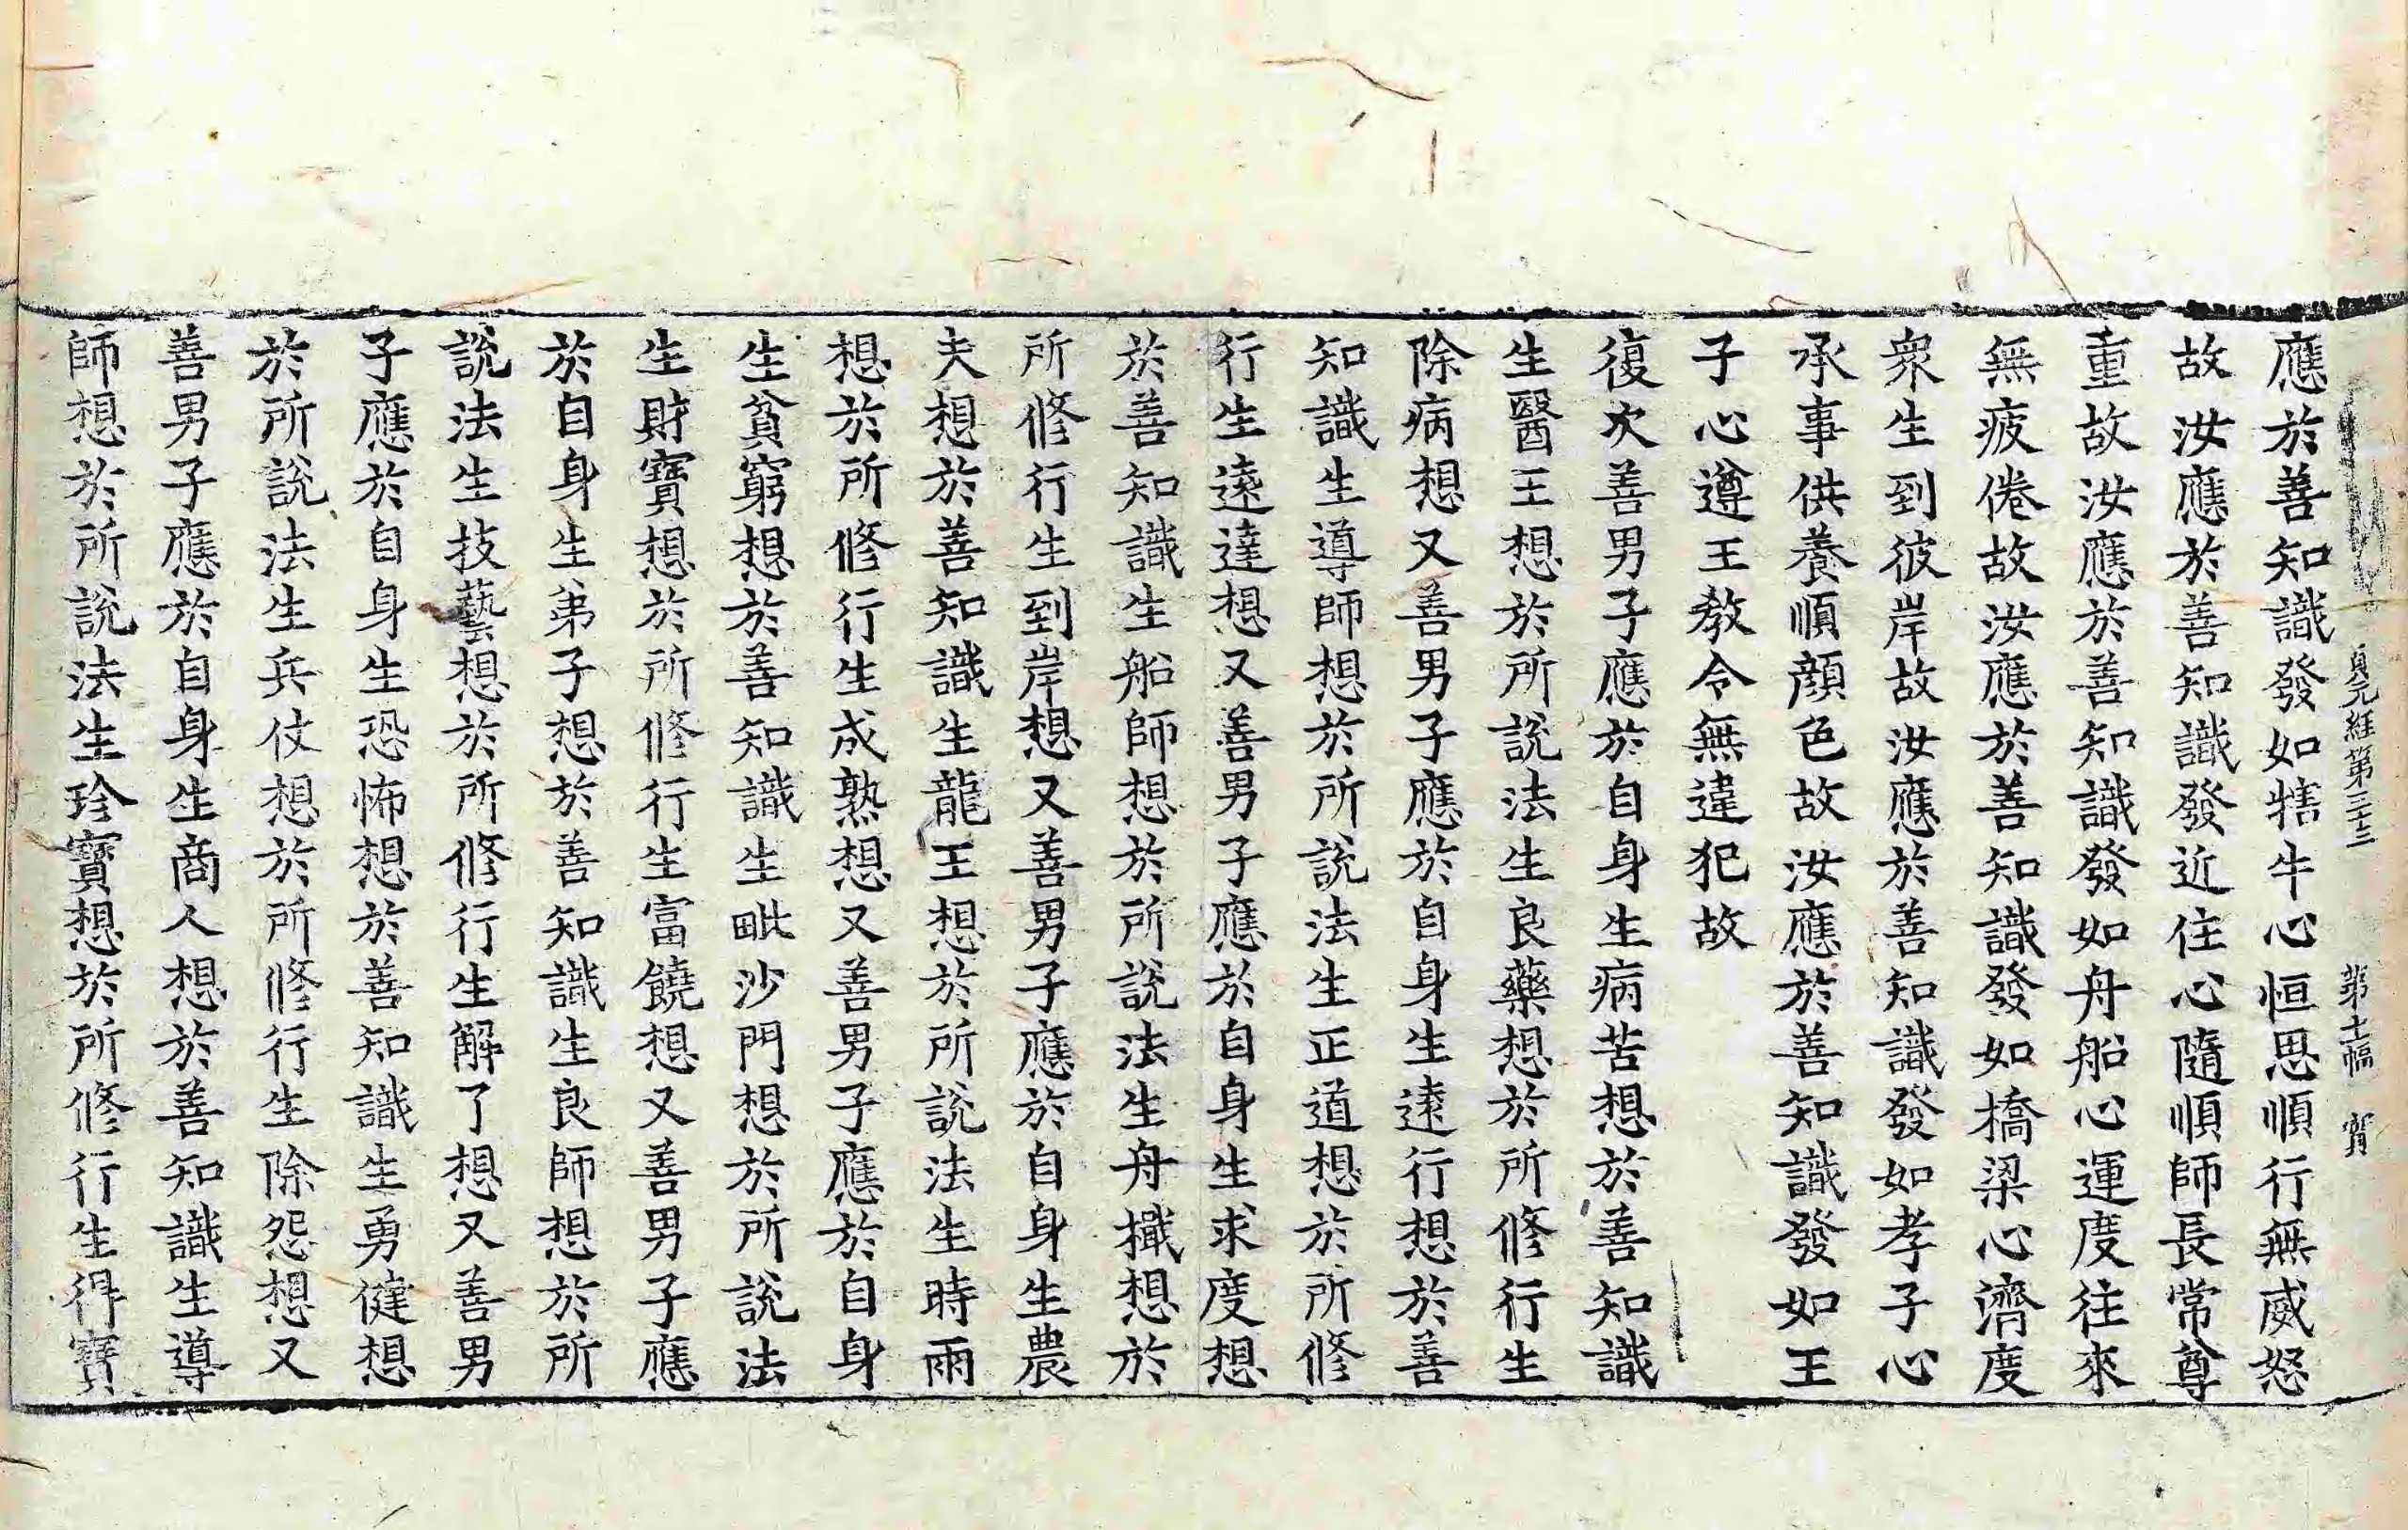 貞元經第三十三 第十二幅 賓
應於善知識發如犗牛心恒思順行無威怒
故汝應於善知識發近住心隨順師長常尊
重故汝應於善知識發如舟船心運度往來
無疲倦故汝應於善知識發如橋梁心濟度
衆生到彼岸故汝應於善知識發如孝子心
承事供養順顔色故汝應於善知識發如王
子心遵王教令無違犯故
復次善男子應於自身生病苦想於善知識
生醫王想於所說法生良藥想於所修行生
除病想又善男子應於自身生遠行想於善
知識生導師想於所說法生正道想於所修
行生遠達想又善男子應於自身生求度想
於善知識生船師想於所說法生舟檝想於
所修行生到岸想又善男子應於自身生農
夫想於善知識生龍王想於所說法生時雨
想於所修行生成熟想又善男子應於自身
生貧窮想於善知識生毗沙門想於所說法
生財寶想於所修行生富饒想又善男子應
於自身生弟子想於善知識生良師想於所
說法生技藝想於所修行生解了想又善男
子應於自身生恐怖想於善知識生勇健想
於所說法生兵仗想於所修行生除怨想又
善男子應於自身生商人想於善知識生導
師想於所說法生珍寶想於所修行生得寶